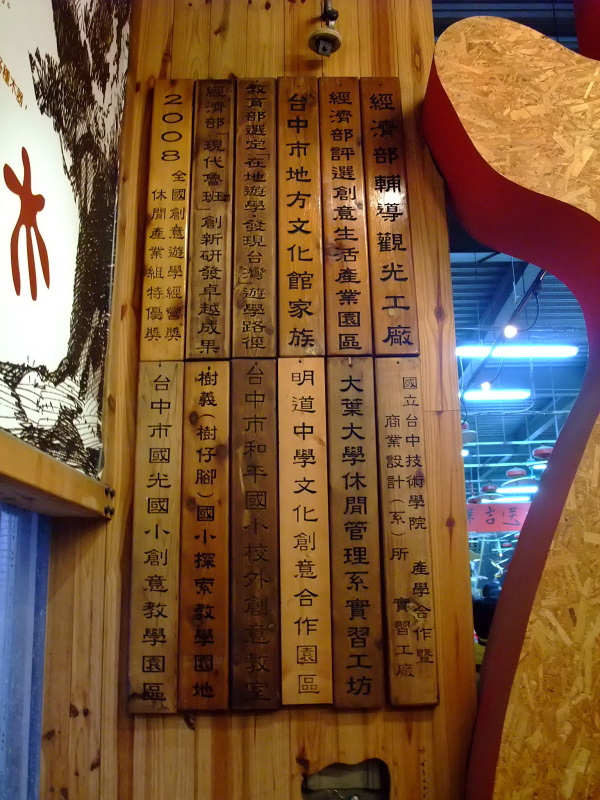 經濟部輔導觀光工廠
經濟部評選創意生活產業園區
台中市地方文化館家族
教育部選定「在地遊學‧發現台灣」遊學路徑
經濟部「現代魯班」創新研發卓越成果
2008全國創意遊學經營獎
休閒產業組特優獎
國立台中技術學院
商業設計(系)所
產學合作暨
實習工廠
大葉大學休閒管理系實習工坊
明道中學文化創意合作園區
台中市和平國小校外創意教室
樹義(樹仔腳)國小探索教學園地
台中市國光國小創意教學園區
送吉祥